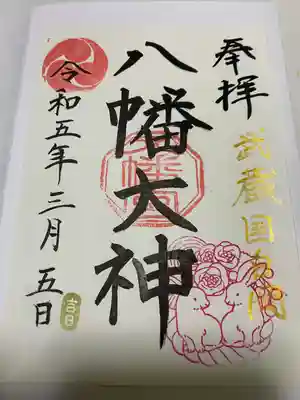 奉拝
武蔵国分間
八幡大神
令和五年三月五日
吉日